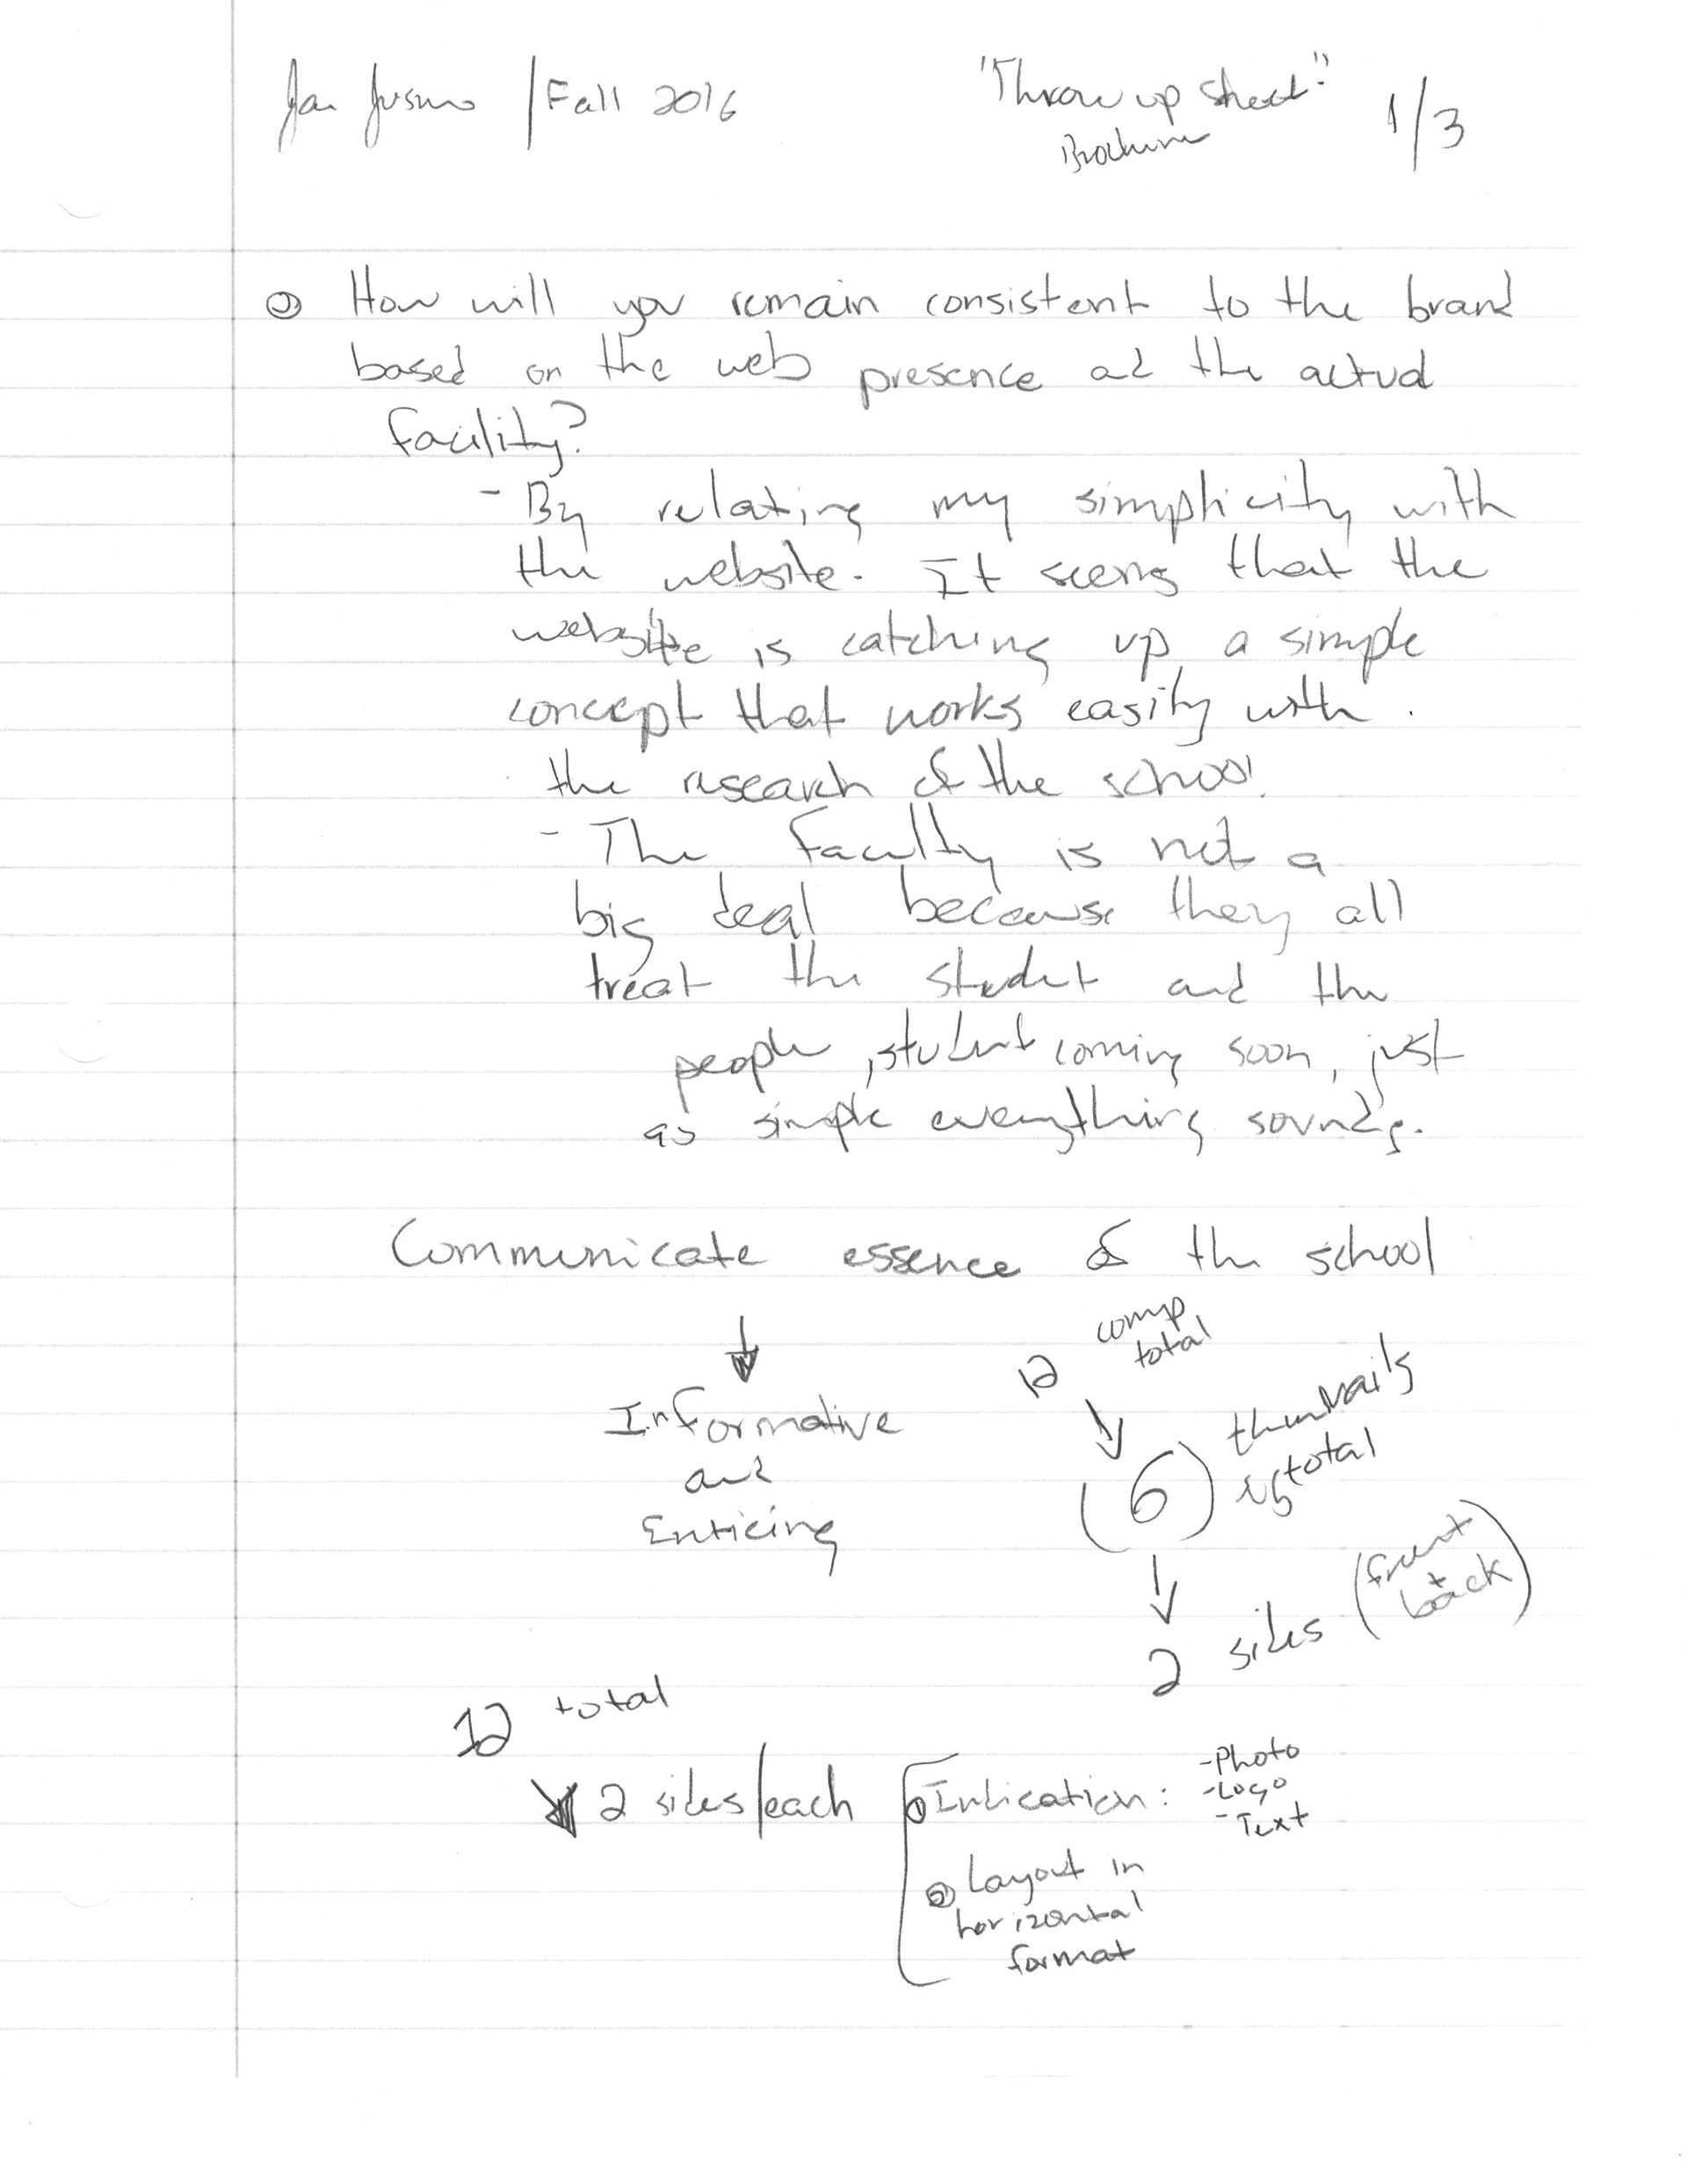 Jan Jusino / Fall 2016
"Throw up sheet" 1/3
Brochure
How will you remain consistent to the brand
based on the web presence ad the actual
facility?
- By relating my simplicity with
the website. It seems that the
website is catching up a simple
concept that works easily with
the research of the school.
- The faculty is not a
big deal because they all
treat the student and the
people, student coming soon, just
as simple everything sounds.
Communicate essence of the school
Informative
and
Enticing
12 comp
total
(6) thumbnails
total
2 sides (front
back)
12 total
2 sides/each
Indication: -Photo
-Logo
-Text
Layout in
horizontal
format